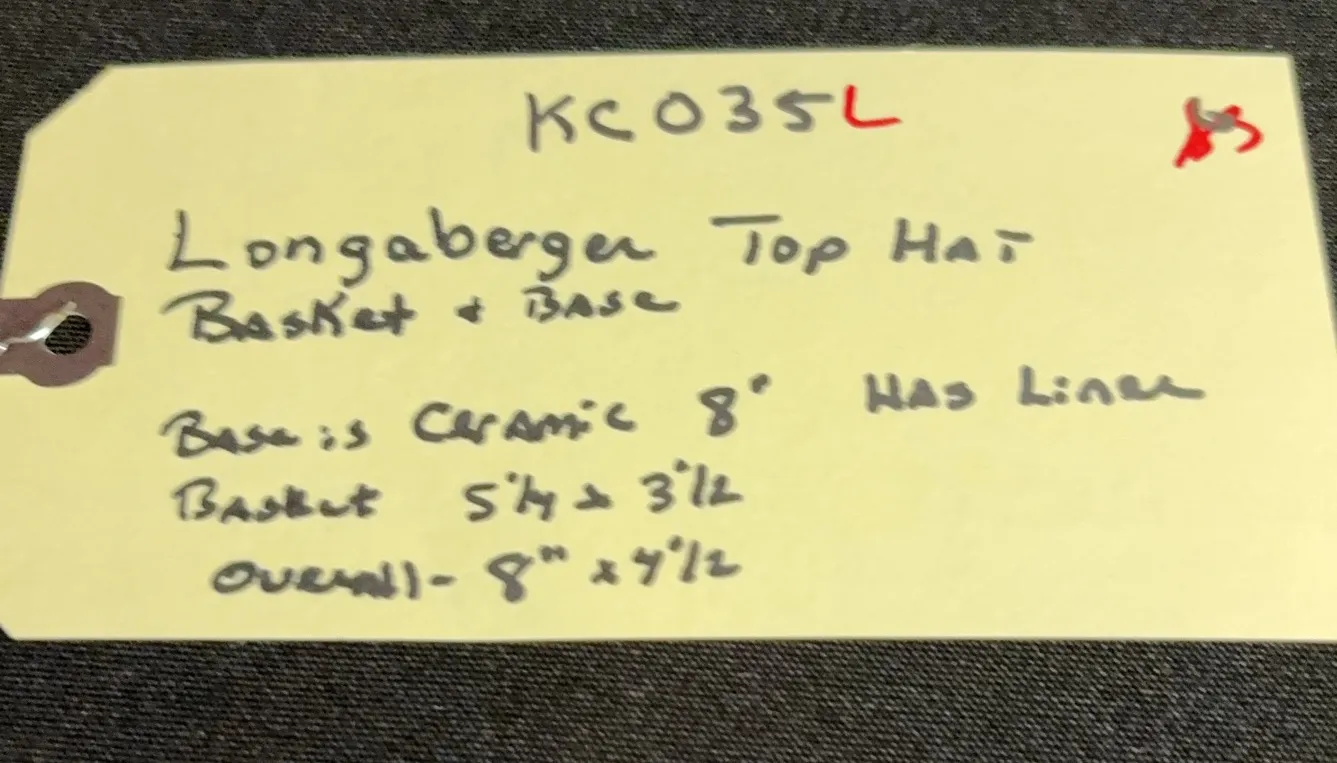 KC035L
Longaberger Top Hat
Basket + Base
Base is Ceramic 8" Has Liner
Basket 5 1/4 x 3 1/2
Overall - 8" x 4 1/2